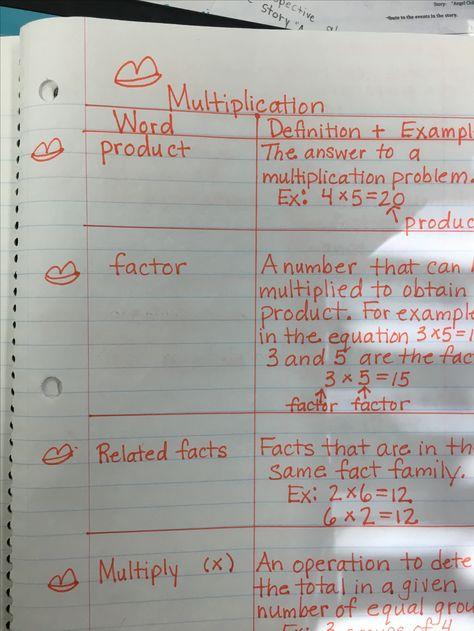 Story: "Angel
spective
story
tribute to the events in the story.
Multiplication
Word
Definition + Exampl
product
The answer to a
multiplication problem.
Ex: 4 × 5 = 20
produc
factor
A number that can
multiplied to obtain
product. For example
in the equation 3×5=1
3 and 5 are the fac
3 × 5 = 15
factor factor
Related facts
Facts that are in th
same fact family.
Ex: 2×6=12
6×2=12
Multiply (x)
An operation to dete
the total in a given
number of equal grou
Ex: 3 groups of 4